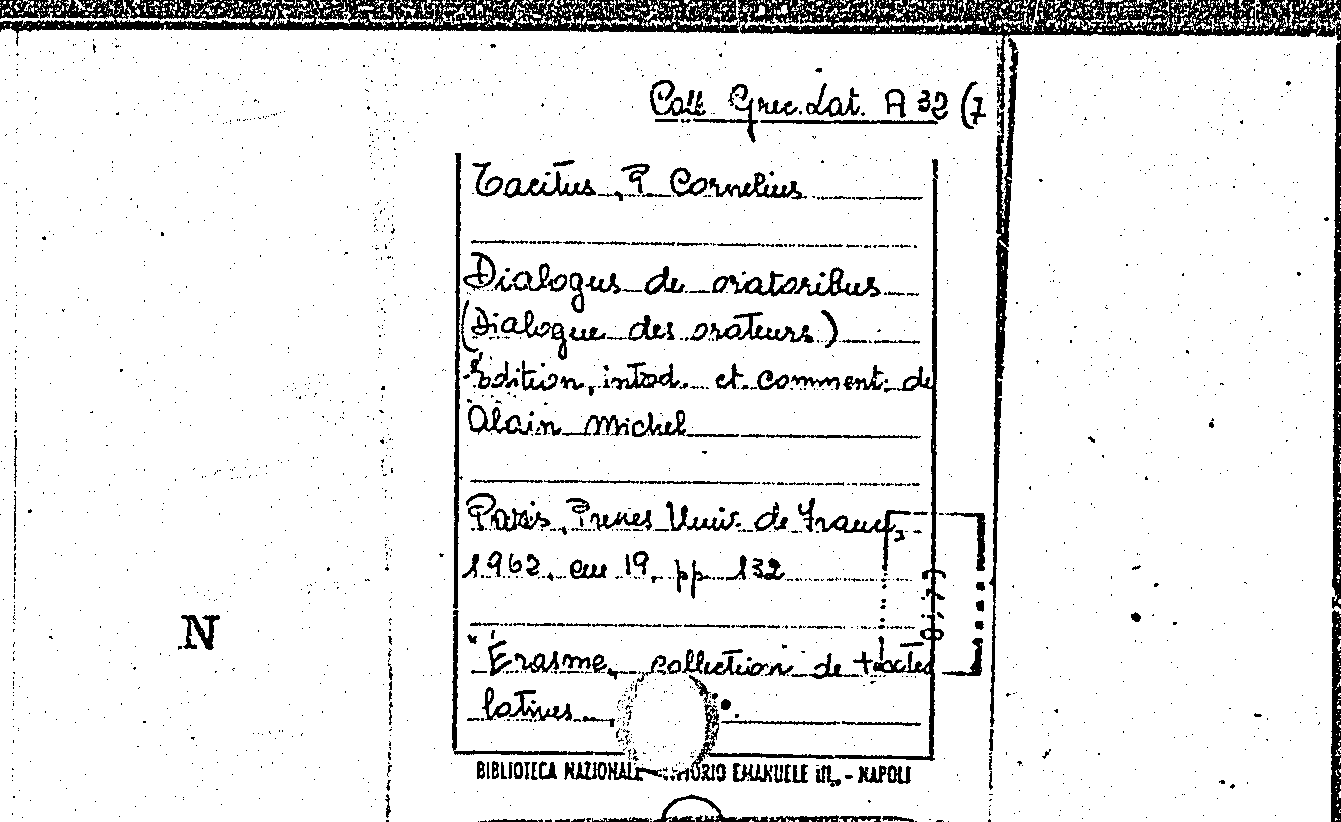 Coll. Grec. Lat. A 32 (7
Tacitus, P. Cornelius
Dialogus de oratoribus
(Dialogue des orateurs)
Édition, introd. et comment. de
Alain Michel
Paris, Presses Univ. de France,
1962, cm 19, pp. 132
N
"Érasme, collection de textes
latines
BIBLIOTECA NAZIONALE EMANUELE III - NAPOLI